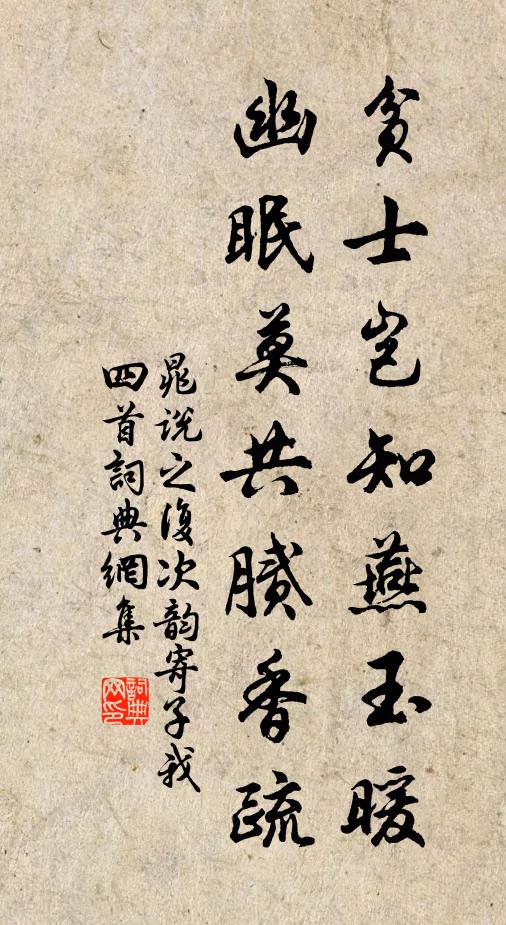 貧士豈知燕玉暖
幽眠莫共膩香疏
晁說之復次韵寄子我
四首詞典網集
詞典
网印